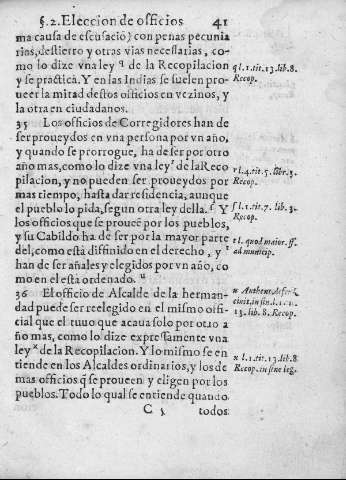 §. 2. Eleccion de officios 41
ma causa de escusació) con penas pecunia
rias, destierro y otras vias necessarias, co-
mo lo dize vna ley q de la Recopilacion
y se practica. Y en las Indias se suelen pro-
ueer la mitad destos officios en vezinos, y
la otra en ciudadanos.
35 Los officios de Corregidores han de
ser proueydos en vna persona por vn año,
y quando se prorrogue, ha de ser por otro
año mas, como lo dize vna ley r de la Reco
pilacion, y no pueden ser proueydos por
mas tiempo, hasta dar residencia, aunque
el pueblo lo pida, segun otra ley della. s Y
los officios que se prouee por los pueblos,
y su Cabildo ha de ser por la mayor parte
del, como está diffinido en el derecho, y t
han de ser añales y elegidos por vn año, co
mo en el está ordenado. u
36 El officio de Alcalde de la herman-
dad puede ser reelegido en el mismo offi-
cial que el tuuo que acaua solo por otro a
ño mas, como lo dize expressamente vna
ley x de la Recopilacion. Y lo mismo se en
tiende en los Alcaldes ordinarios, y los de
mas officios q̃ se proueen y eligen por los
pueblos. Todo lo qual se entiende quando
C 3 todos
q l. 1. tit. 13. lib. 8.
Recop.
r l. 4. tit. 5. libr. 3.
Recop.
s l. 1. tit. 7. lib. 3.
Recop.
t l. quod maior. ff.
ad municip.
u Authent. de
cinit. in fin. l. 1.
13. lib. 8. Recop.
x l. 1. tit. 13. lib. 8.
Recop. in fine leg.